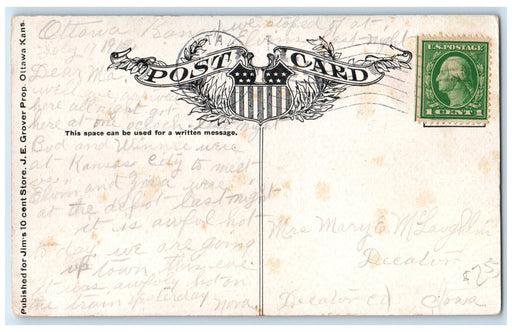 Ottawa Kans
July 9 19
we stoped of at
Elvin's last night
Dear Ma
well we
here all right got
here at one oclock last night
Bud and Winnie were
at Kansas City to meet
us. Elvin and were
at the depot last night
it is awful hot
to day we are going
up town this eve.
it was awful hot on
the train yesterday
Nora.
POST CARD
This space can be used for a written message.
Published for Jim's 10 cent Store, J. E. Grover Prop. Ottawa Kans.
U.S. POSTAGE
1 CENT 1
Mrs Mary E. McLaughlin
Decatur
Decatur Co Iowa